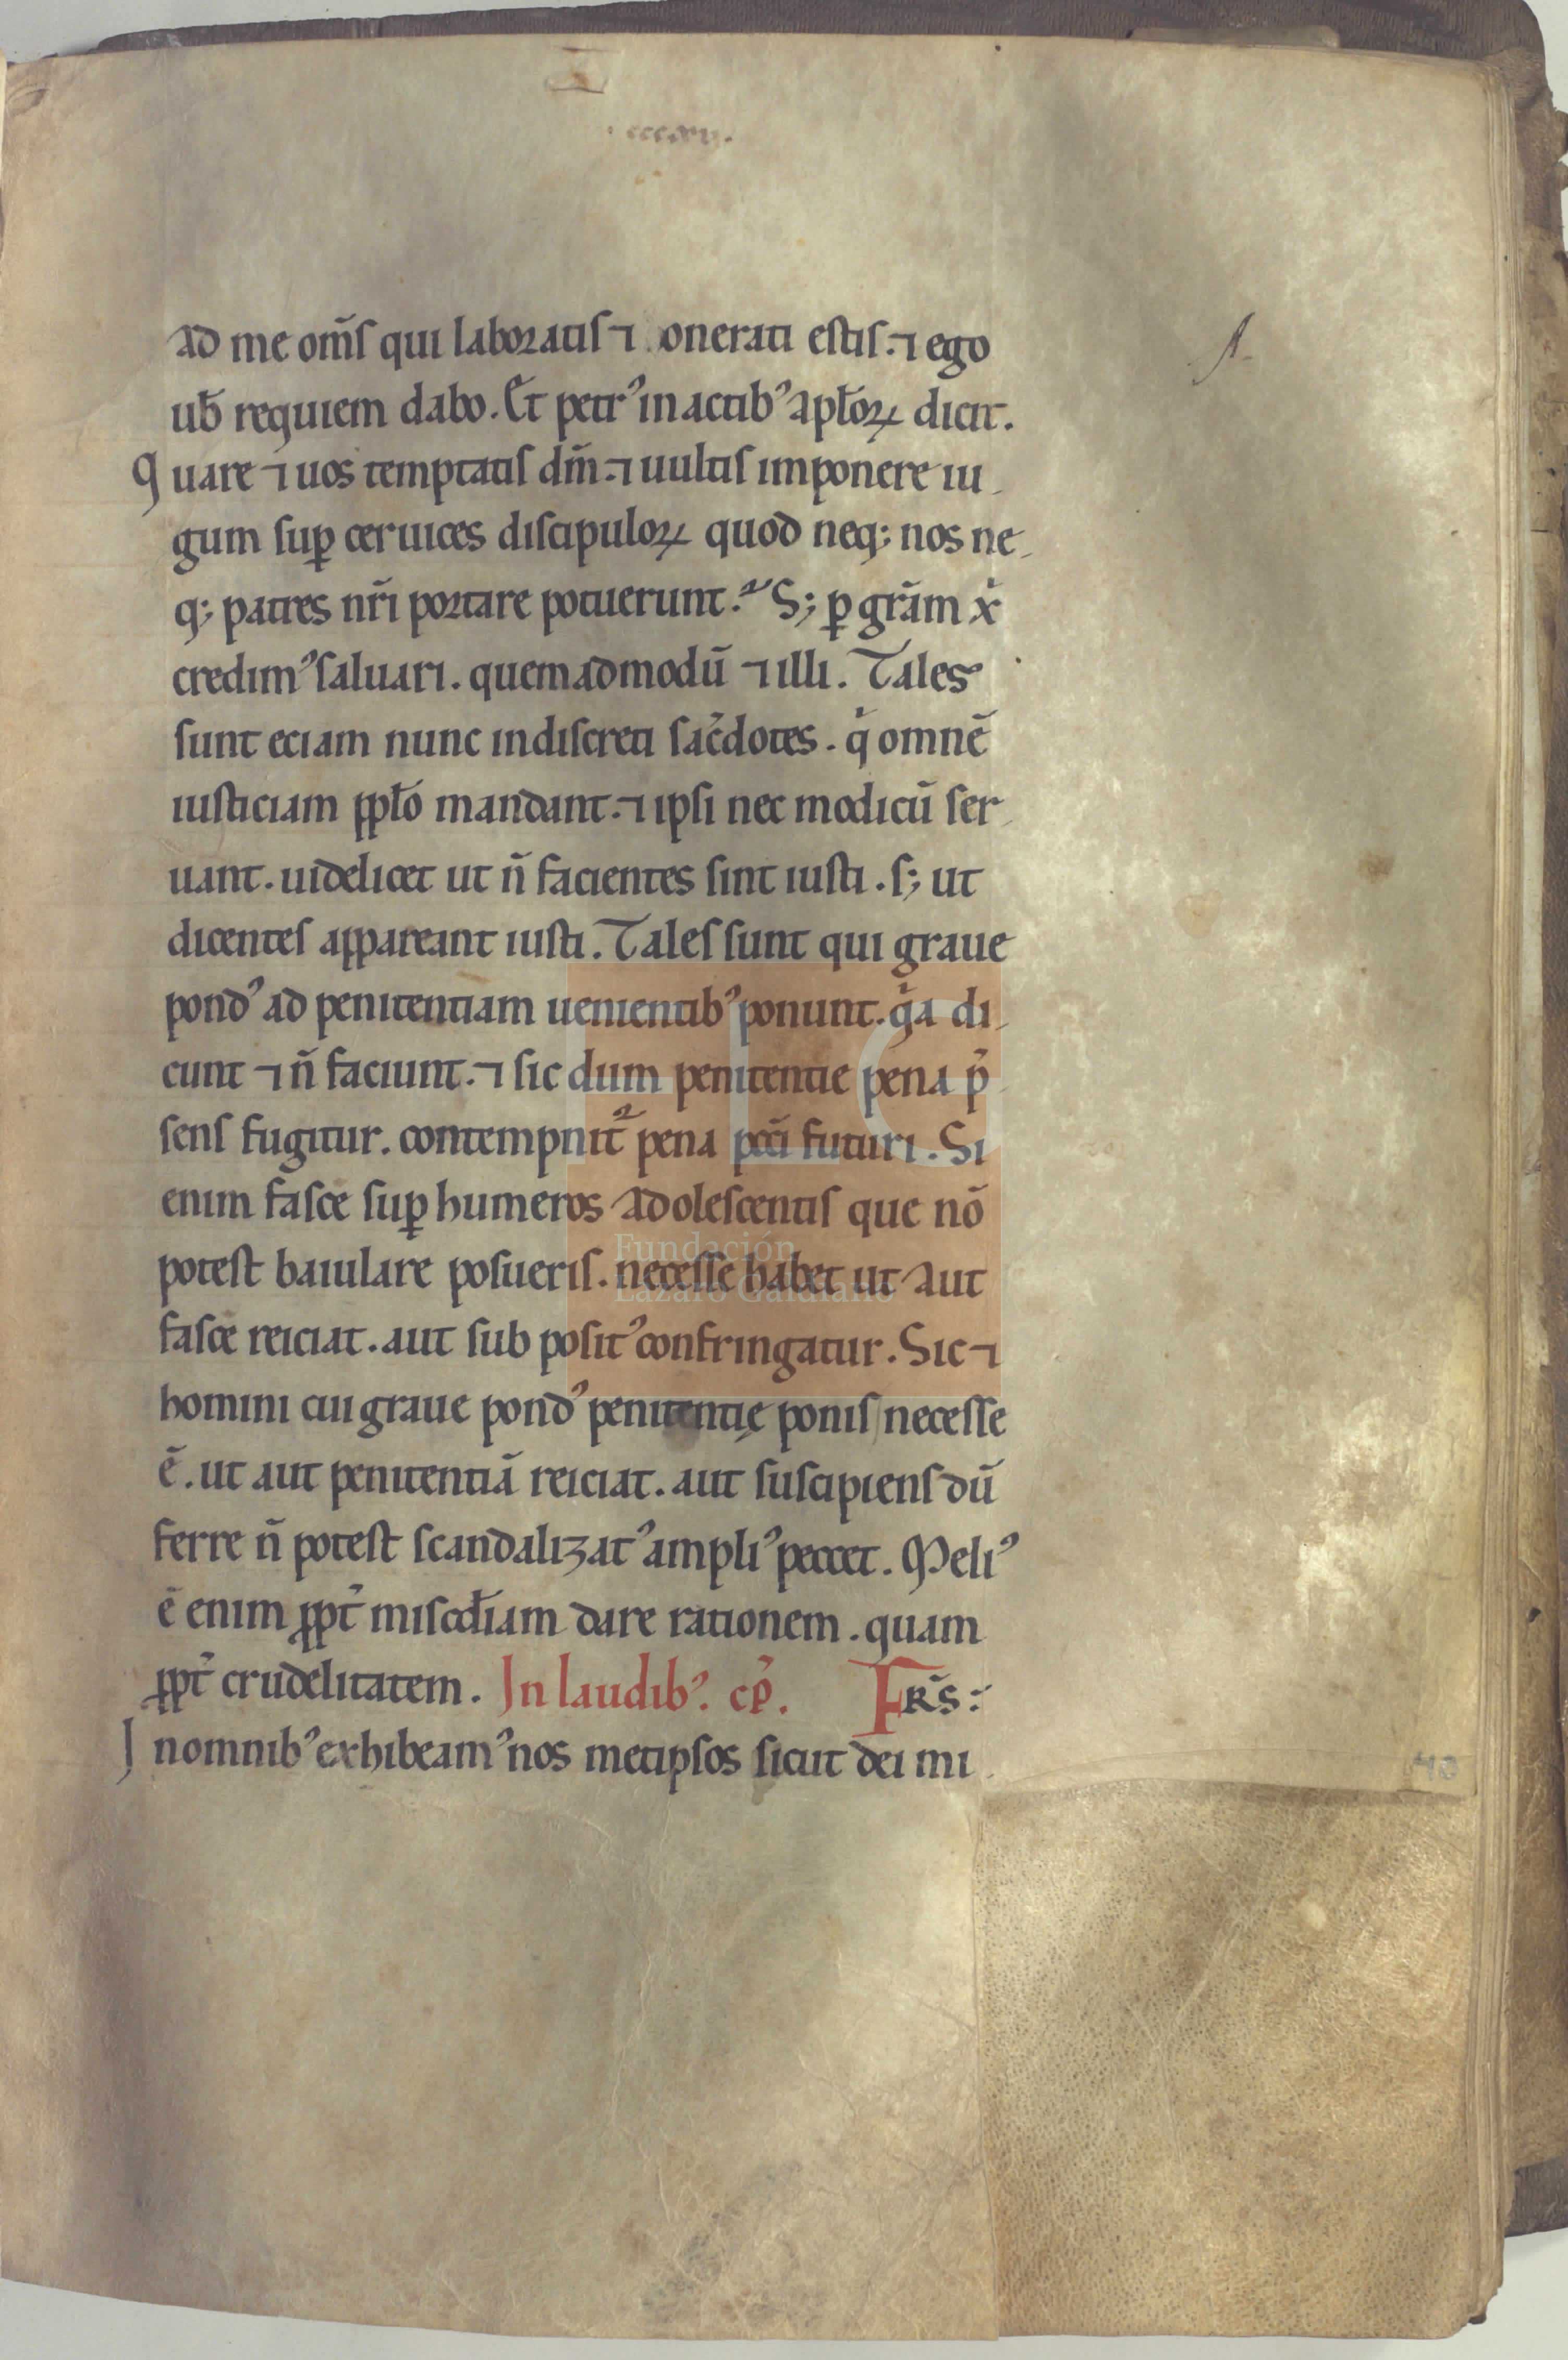 .ccccxv.
ad me om̅s qui laboratis ⁊ onerati estis. ⁊ ego
ub̅ requiem dabo. Et petrꝰ in actibꝰ apl̅oꝝ dicit.
Quare ⁊ uos temptatis dm̅. ⁊ uultis imponere iu
gum suꝑ ceruices discipuloꝝ quod neq; nos ne
q; patres nr̅i portare potuerunt. S; ꝑ gr̅am xͥ
credimꝰ saluari. quemadmodū ⁊ illi. Tales
sunt eciam nunc indiscreti sac̅dotes. qͥ omnē
iusticiam ppl̅o mandant. ⁊ ipsi nec modicū ser
uant. uidelicet ut n̅ facientes sint iusti. s; ut
dicentes appareant iusti. Tales sunt qui graue
pondꝰ ad penitentiam uenientibꝰ ponunt. qͥa di
cunt ⁊ n̅ faciunt. ⁊ sic dum penitentie pena p̅
sens fugitur. contempnit᷑ pena pcc̅i futuri. Si
enim fasce suꝑ humeros adolescentis que nō
potest baiulare posueris. necesse habet ut aut
fasce reiciat. aut sub positꝰ confringatur. Sic ⁊
homini cui graue pondꝰ penitentię ponis necesse
ē. ut aut penitentiā reiciat. aut suscipiens dū
ferre n̅ potest scandalizatꝰ ampliꝰ peccet. Meliꝰ
ē enim ꝓpt̅ misc̅diam dare rationem. quam
ꝓpt̅ crudelitatem. In laudibꝰ. cp̅. FRS̅:
In omnibꝰ exhibeamꝰ nos metipsos sicut dei mi
Fundación
Lázaro Galdiano